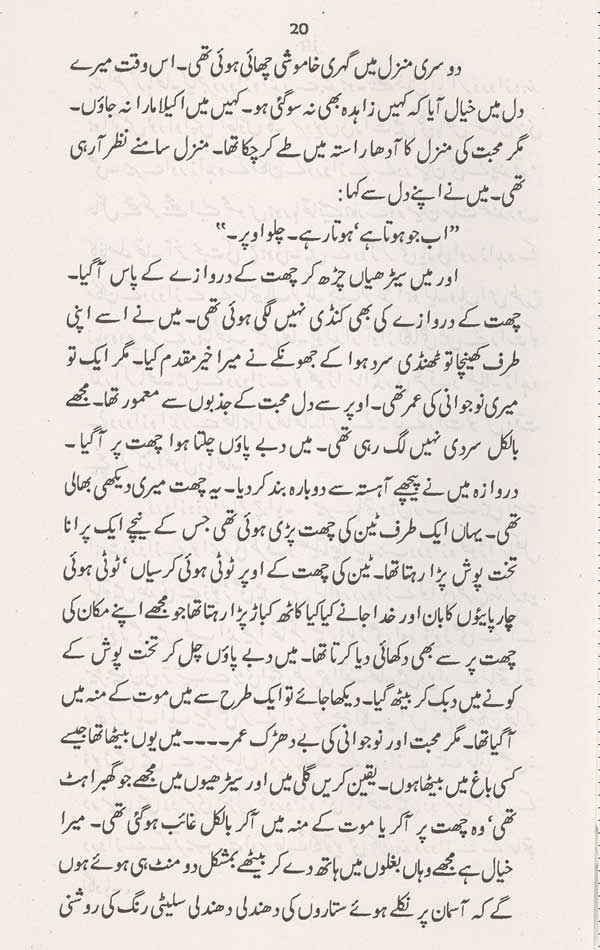 20
دوسری منزل میں گہری خاموشی چھائی ہوئی تھی۔ اس وقت میرے
دل میں خیال آیا کہ کہیں زاہدہ بھی نہ سو گئی ہو۔ کہیں میں اکیلا مارا نہ جاؤں۔
مگر محبت کی منزل کا آدھا راستہ میں طے کر چکا تھا۔ منزل سامنے نظر آ رہی
تھی۔ میں نے اپنے دل سے کہا:
”اب جو ہوتا ہے‘ ہوتا رہے۔ چلو اوپر۔“
اور میں سیڑھیاں چڑھ کر چھت کے دروازے کے پاس آ گیا۔
چھت کے دروازے کی بھی کنڈی نہیں لگی ہوئی تھی۔ میں نے اسے اپنی
طرف کھینچا تو ٹھنڈی سرد ہوا کے جھونکے نے میرا خیر مقدم کیا۔ مگر ایک تو
میری نوجوانی کی عمر تھی۔ اوپر سے دل محبت کے جذبوں سے معمور تھا۔ مجھے
بالکل سردی نہیں لگ رہی تھی۔ میں دبے پاؤں چلتا ہوا چھت پر آ گیا۔
دروازہ میں نے پیچھے آہستہ سے دوبارہ بند کر دیا۔ یہ چھت میری دیکھی بھالی
تھی۔ یہاں ایک طرف ٹین کی چھت پڑی ہوئی تھی جس کے نیچے ایک پرانا
تخت پوش پڑا رہتا تھا۔ ٹین کی چھت کے اوپر ٹوٹی ہوئی کرسیاں‘ ٹوٹی ہوئی
چارپائیوں کا بان اور خدا جانے کیا کیا کاٹھ کباڑ پڑا رہتا تھا جو مجھے اپنے مکان کی
چھت پر سے بھی دکھائی دیا کرتا تھا۔ میں دبے پاؤں چل کر تخت پوش کے
کونے میں دبک کر بیٹھ گیا۔ دیکھا جائے تو ایک طرح سے میں موت کے منہ میں
آ گیا تھا۔ مگر محبت اور نوجوانی کی بے دھڑک عمر۔۔۔۔ میں یوں بیٹھا تھا جیسے
کسی باغ میں بیٹھا ہوں۔ یقین کریں گلی میں اور سیڑھیوں میں مجھے جو گھبراہٹ
تھی‘ وہ چھت پر آ کر یا موت کے منہ میں آ کر بالکل غائب ہو گئی تھی۔ میرا
خیال ہے مجھے وہاں بغلوں میں ہاتھ دے کر بیٹھے بمشکل دو منٹ ہی ہوئے ہوں
گے کہ آسمان پر نکلے ہوئے ستاروں کی دھندلی دھندلی سلیٹی رنگ کی روشنی